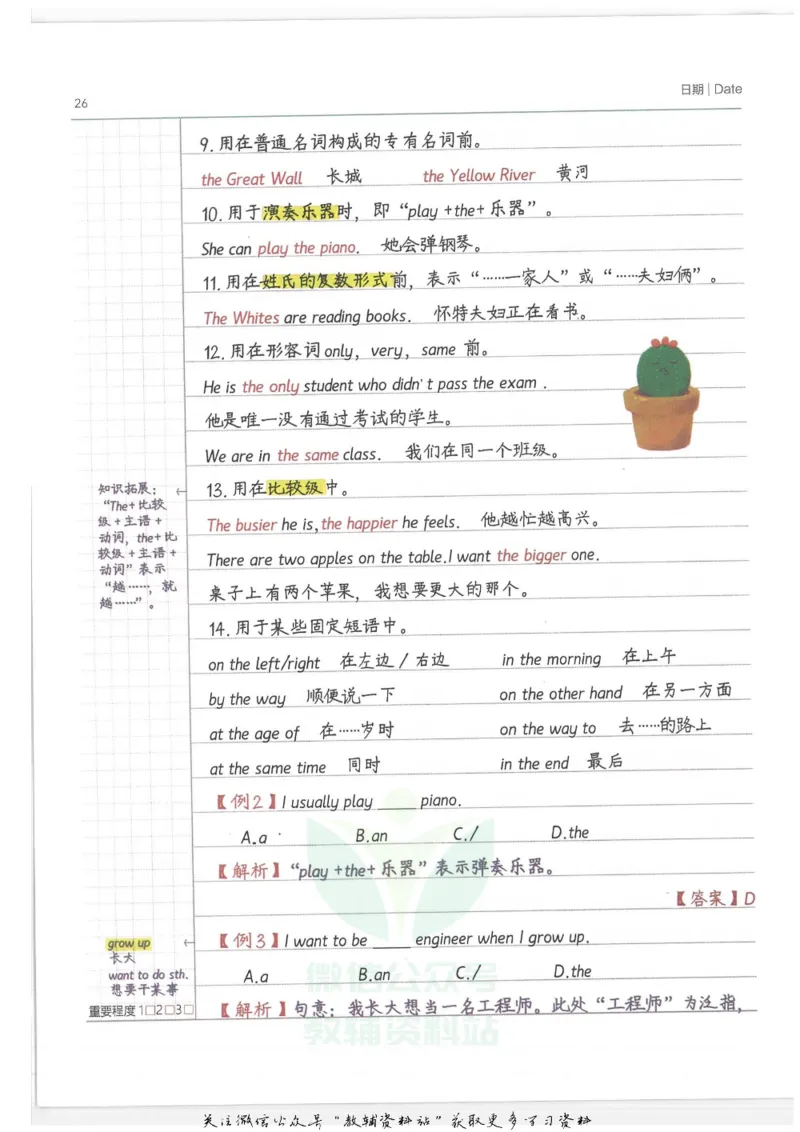 日期 | Date
26
9.用在普通名词构成的专有名词前。
the Great Wall 长城 the Yellow River 黄河
10.用于演奏乐器时，即“play +the+乐器”。
She can play the piano. 她会弹钢琴。
11.用在姓氏的复数形式前，表示“……一家人”或“……夫妇俩”。
The Whites are reading books. 怀特夫妇正在看书。
12.用在形容词only，very，same 前。
He is the only student who didn't pass the exam .
他是唯一没有通过考试的学生。
We are in the same class. 我们在同一个班级。
知识拓展：
“The+比较
级+主语+
动词，the+比
较级+主语+
动词”表示
“越……，就
越……”。
13.用在比较级中。
The busier he is,the happier he feels. 他越忙越高兴。
There are two apples on the table.I want the bigger one.
桌子上有两个苹果，我想要更大的那个。
14.用于某些固定短语中。
on the left/right 在左边/右边 in the morning 在上午
by the way 顺便说一下 on the other hand 在另一方面
at the age of 在……岁时 on the way to 去……的路上
at the same time 同时 in the end 最后
【例2】I usually play ____ piano.
A.a B.an C./ D.the
【解析】“play +the+乐器”表示弹奏乐器。
【答案】D
grow up
长大
want to do sth.
想要干某事
【例3】I want to be ____ engineer when I grow up.
A.a B.an C./ D.the
【解析】句意：我长大想当一名工程师。此处“工程师”为泛指，
重要程度 1□2□3□
微信公众号
教辅资料站
关注微信公众号“教辅资料站”获取更多学习资料